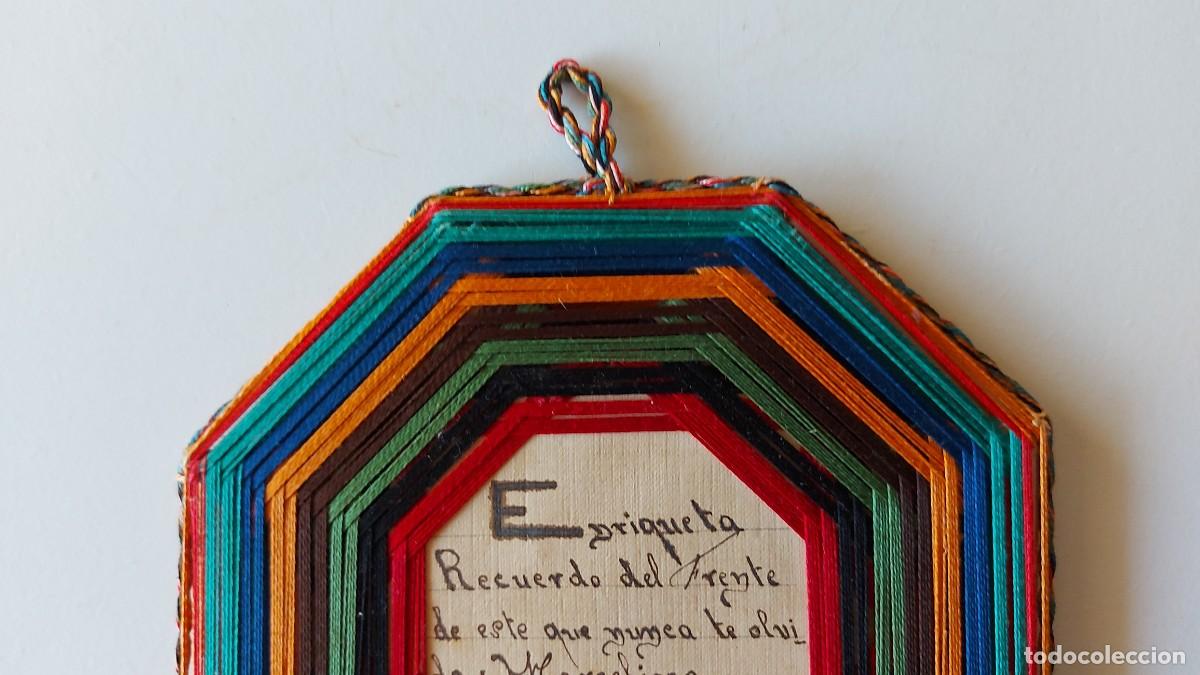 Enriqueta
Recuerdo del Frente
de este que nunca te olvi-
da; Marcelino
todocoleccion